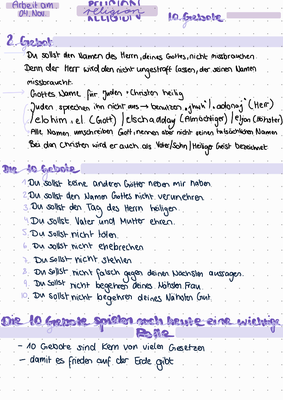 Arbeit am
04. Nov.
RELIGION
religion
RELIGION
10. Gebote
2. Gebot
Du sollst den Namen des Herrn, deines Gottes, nicht missbrauchen.
Denn der Herr wird den nicht ungestraft lassen, der seinen Namen
missbraucht.
Gottes Name für Juden + Christen heilig
Juden sprechen ihn nicht aus → benutzen "jhwh", adonaj" (Herr)
/elohim, el (Gott) /elschadday (Allmächtiger) /eljon (Höchster)
Alle Namen umschreiben Gott, nennen aber nicht seinen tatsächlichen Namen
Bei den Christen wird er auch als Vater/Sohn/Heilige Geist bezeichnet
Die 10 Gebote
1. Du sollst keine anderen Götter neben mir haben
2. Du sollst den Namen Gottes nicht verunehren
3. Du sollst den Tag des Herrn heiligen
4. Du sollst Vater und Mutter ehren.
5. Du sollst nicht töten.
6. Du sollst nicht ehebrechen
7. Du sollst nicht stehlen
8. Du sollst nicht falsch gegen deinen Nächsten aussagen.
9. Du sollst nicht begehren deines Nächsten Frau.
10. Du sollst nicht begehren deines Nächsten Gut.
Die 10 Gebote spielen noch heute eine wichtige
Rolle
- 10 Gebote sind Kern von vielen Gesetzen
- damit es frieden auf der Erde gibt